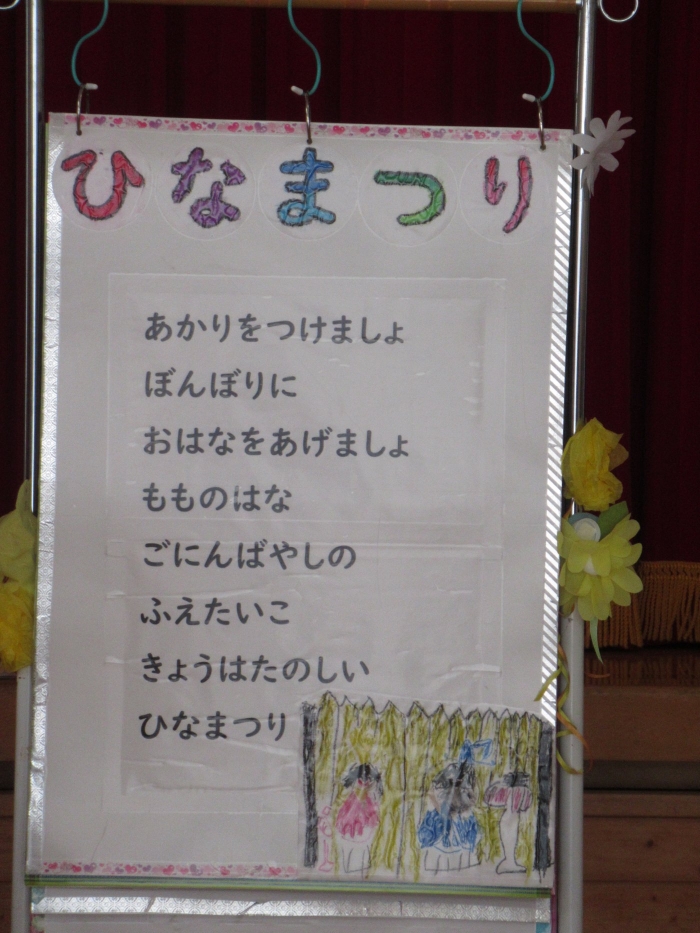 ひなまつり
あかりをつけましょ
ぼんぼりに
おはなをあげましょ
もものはな
ごにんばやしの
ふえたいこ
きょうはたのしい
ひなまつり